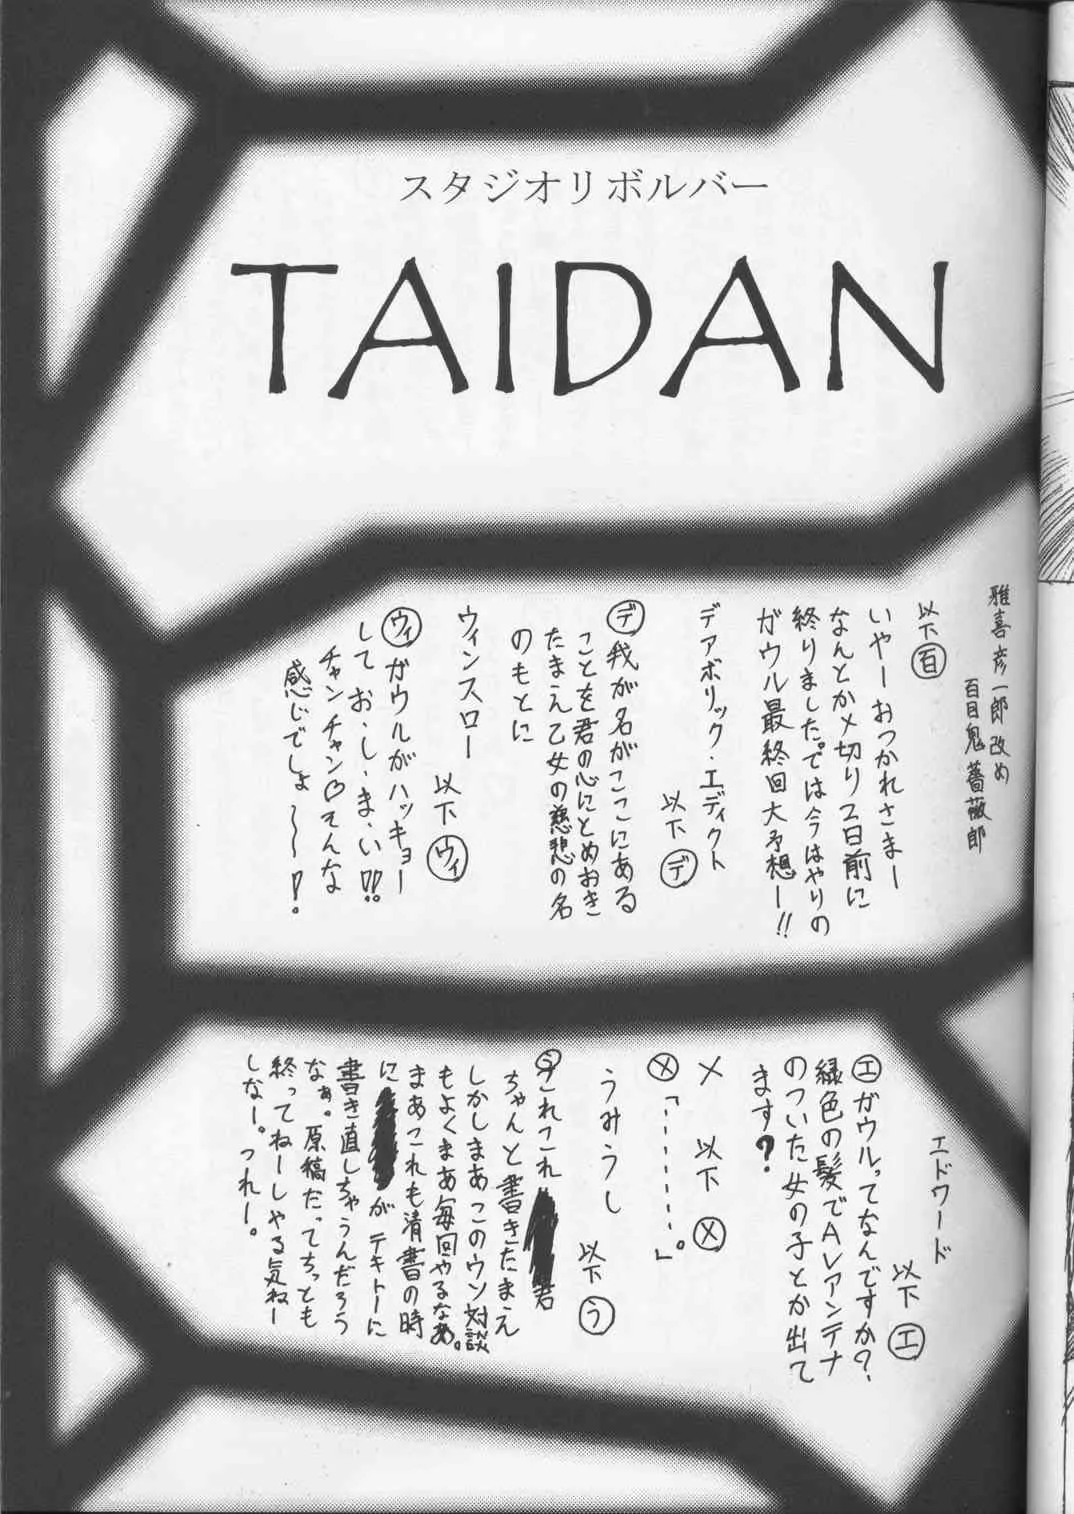 スタジオリボルバー
TAIDAN
雅喜彦一郎 改め
百目鬼薔薇郎
以下百
いやーおつかれさまー
なんとか〆切り2日前に
終りました。では今はやりの
ガウル最終回大予想ー!!
デアボリック・エディクト
以下デ
デ我が名がここにある
ことを君の心にとめおき
たまえ乙女の慈悲の名
のもとに
ウィンスロー
以下ウィ
ウィガウルがハッキョー
して お・し・ま・い!!
チャンチャン♡てんな
感じでしょ〜〜!。
エドワード
以下エ
エガウルってなんですか?
緑色の髪でAレアンテナ
のついた女の子とか出て
ます?
メ 以下メ
メ「・・・・・・・。」
うみうし
以下う
うこれこれ 君
ちゃんと書きたまえ
しかしまあこのウソ対談
もよくまあ毎回やるなあ。
まあこれも清書の時
に がテキトーに
書き直しちゃうんだろう
なぁ。原稿だってちっとも
終ってねーしやる気ねー
しなー。つれー。